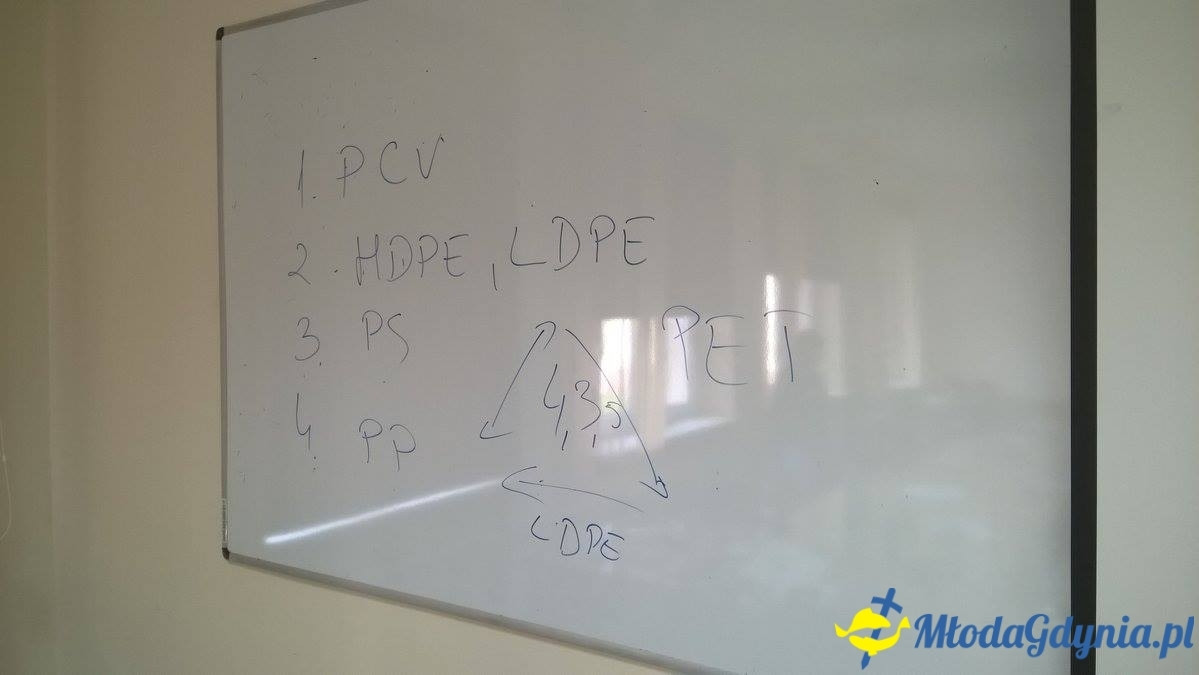 1. PCV
2. HDPE, LDPE
3. PS
4. PP
PET
4,3,5
LDPE
MłodaGdynia.pl